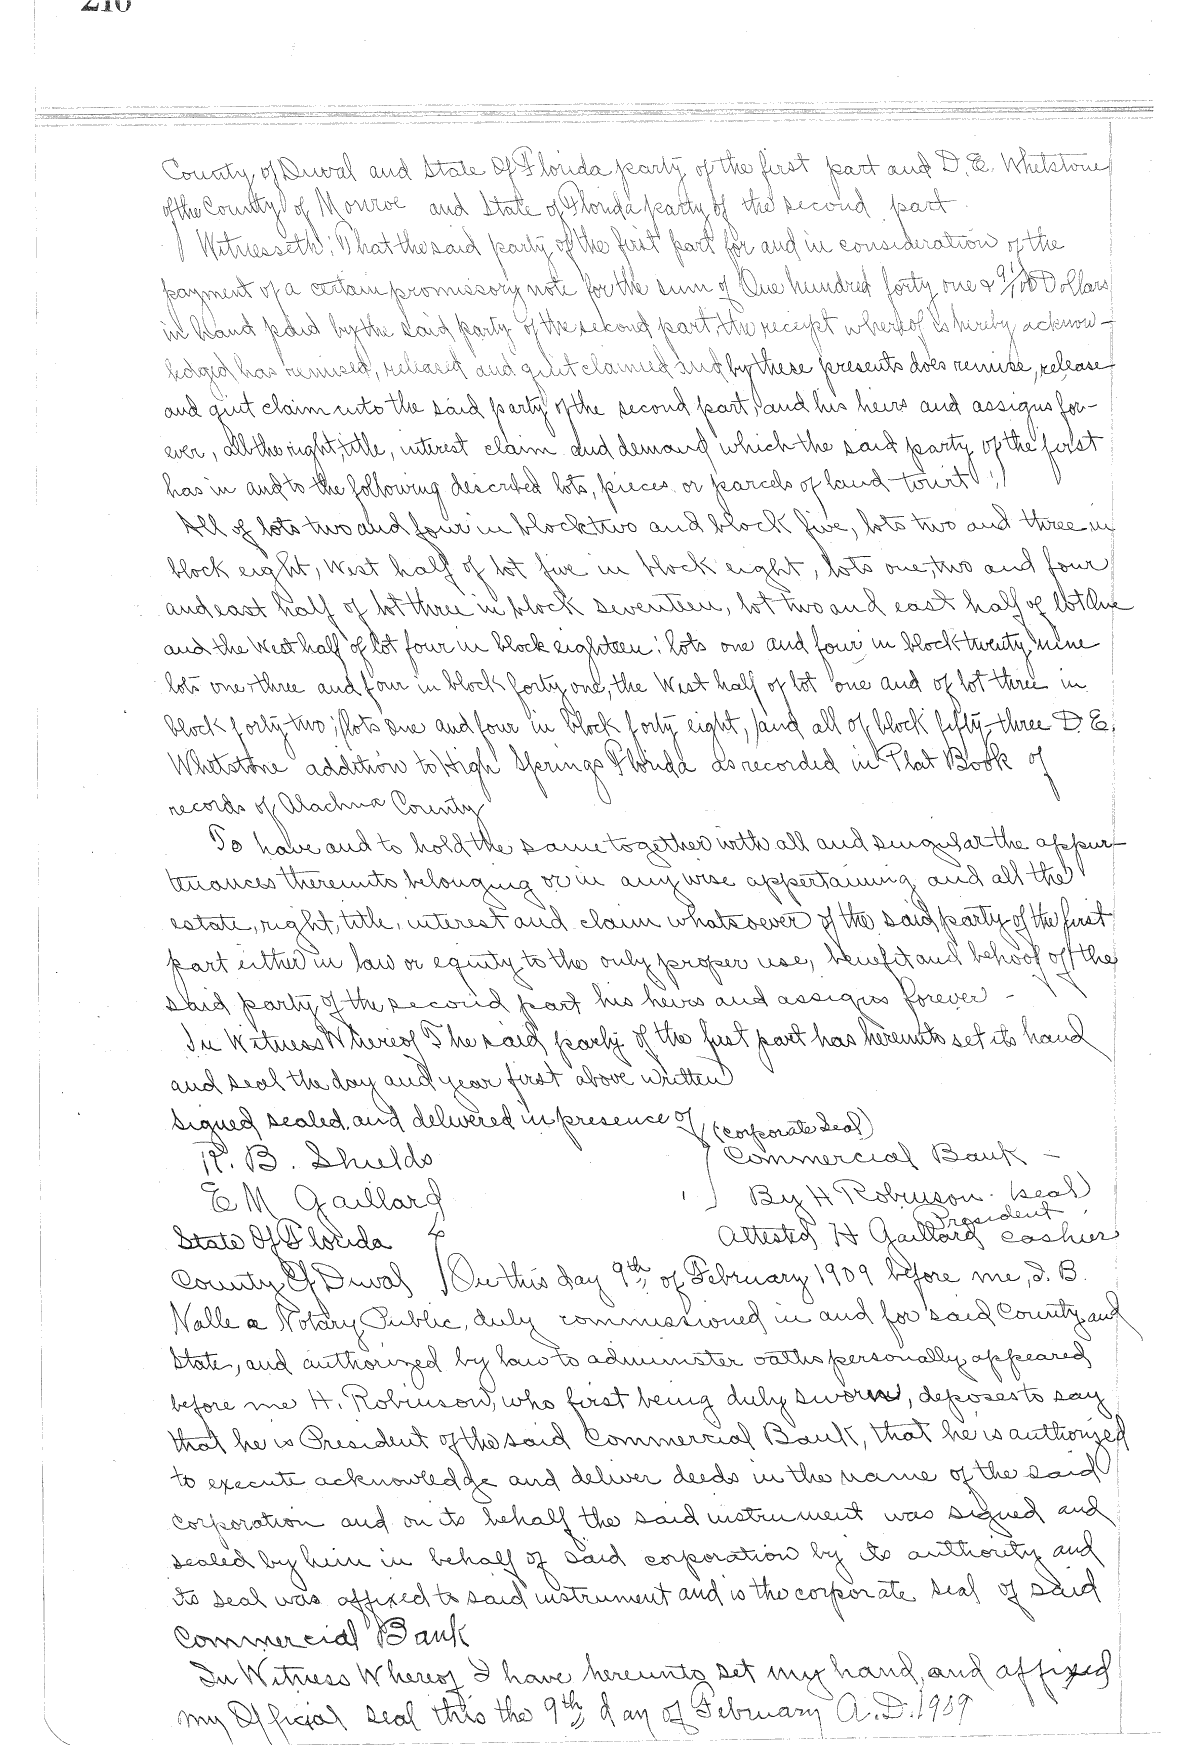 210
County of Duval and State Of Florida party of the first part and D. E. Whetstone
of the County of Monroe and State of Florida party of the second part.
Witnesseth: That the said party of the first part for and in consideration of the
payment of a certain promissory note for the sum of One hundred forty one & 91/100 Dollars
in hand paid by the said party of the second part, the receipt whereof is hereby acknow-
ledged, has remised, released and quit claimed and by these presents does remise, release
and quit claim unto the said party of the second part, and his heirs and assigns for-
ever, all the right, title, interest claim and demand which the said party of the first
has in and to the following described lots, pieces or parcels of land towit:
All of lots two and four in block two and block five, lots two and three in
block eight, West half of lot five in block eight, lots one, two and four
and east half of lot three in block seventeen, lot two and east half of lot One
and the West half of lot four in block eighteen: lots one and four in block twenty nine
lots one three and four in block forty one, the West half of lot one and of lot three in
block forty two; lots one and four in block forty eight, and all of block fifty-three D. E.
Whetstone addition to High Springs Florida as recorded in Plat Book of
records of Alachua County
To have and to hold the same together with all and singular the appur-
tenances thereunto belonging or in any wise appertaining and all the
estate, right, title, interest and claim whatsoever of the said party of the first
part either in law or equity to the only proper use, benefit and behoof of the
said party of the second part his heirs and assigns forever -
In Witness Whereof The said party of the first part has hereunto set its hand
and seal the day and year first above written
Signed sealed and delivered in presence of (Corporate Seal)
R. B. Shields Commercial Bank -
E M Gaillard By H Robinson. (seal)
President
State Of Florida Attested H Gaillard cashier
County Of Duval On this day 9th of February 1909 before me, J. B.
Nalle a Notary Public, duly commissioned in and for said County and
State, and authorized by law to administer oaths personally appeared
before me H. Robinson, who first being duly sworn, deposes to say
that he is President of the said Commercial Bank, that he is authorized
to execute acknowledge and deliver deeds in the name of the said
corporation and on its behalf the said instrument was signed and
sealed by him in behalf of said corporation by its authority and
its seal was affixed to said instrument and is the corporate seal of said
Commercial Bank
In Witness Whereof I have hereunto set my hand and affixed
my Official seal this the 9th day of February A.D. 1909